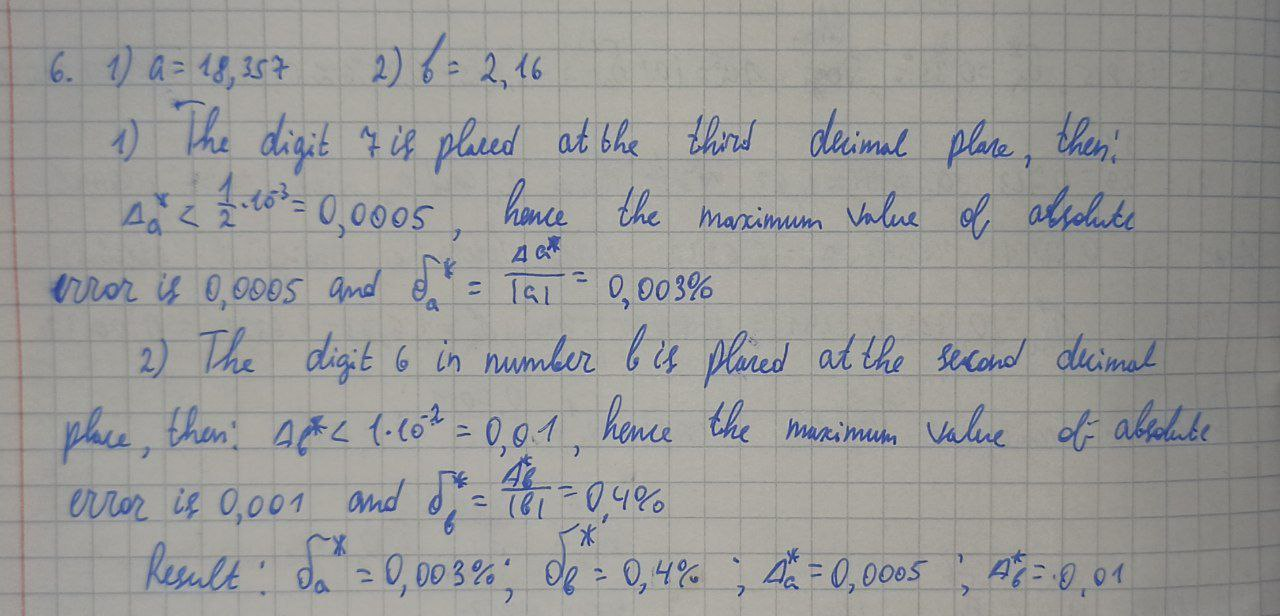 6. 1) a = 18,357 2) b = 2,16
1) The digit 7 is placed at the third decimal place, then:
Δa* < 1/2 · 10⁻³ = 0,0005, hence the maximum value of absolute
error is 0,0005 and δa* = Δa*/|a| = 0,003%
2) The digit 6 in number b is placed at the second decimal
place, then: Δb* < 1 · 10⁻² = 0,01, hence the maximum value of absolute
error is 0,001 and δb* = Δb*/|b| = 0,4%
Result: δa* = 0,003%; δb* = 0,4%; Δa* = 0,0005; Δb* = 0,01